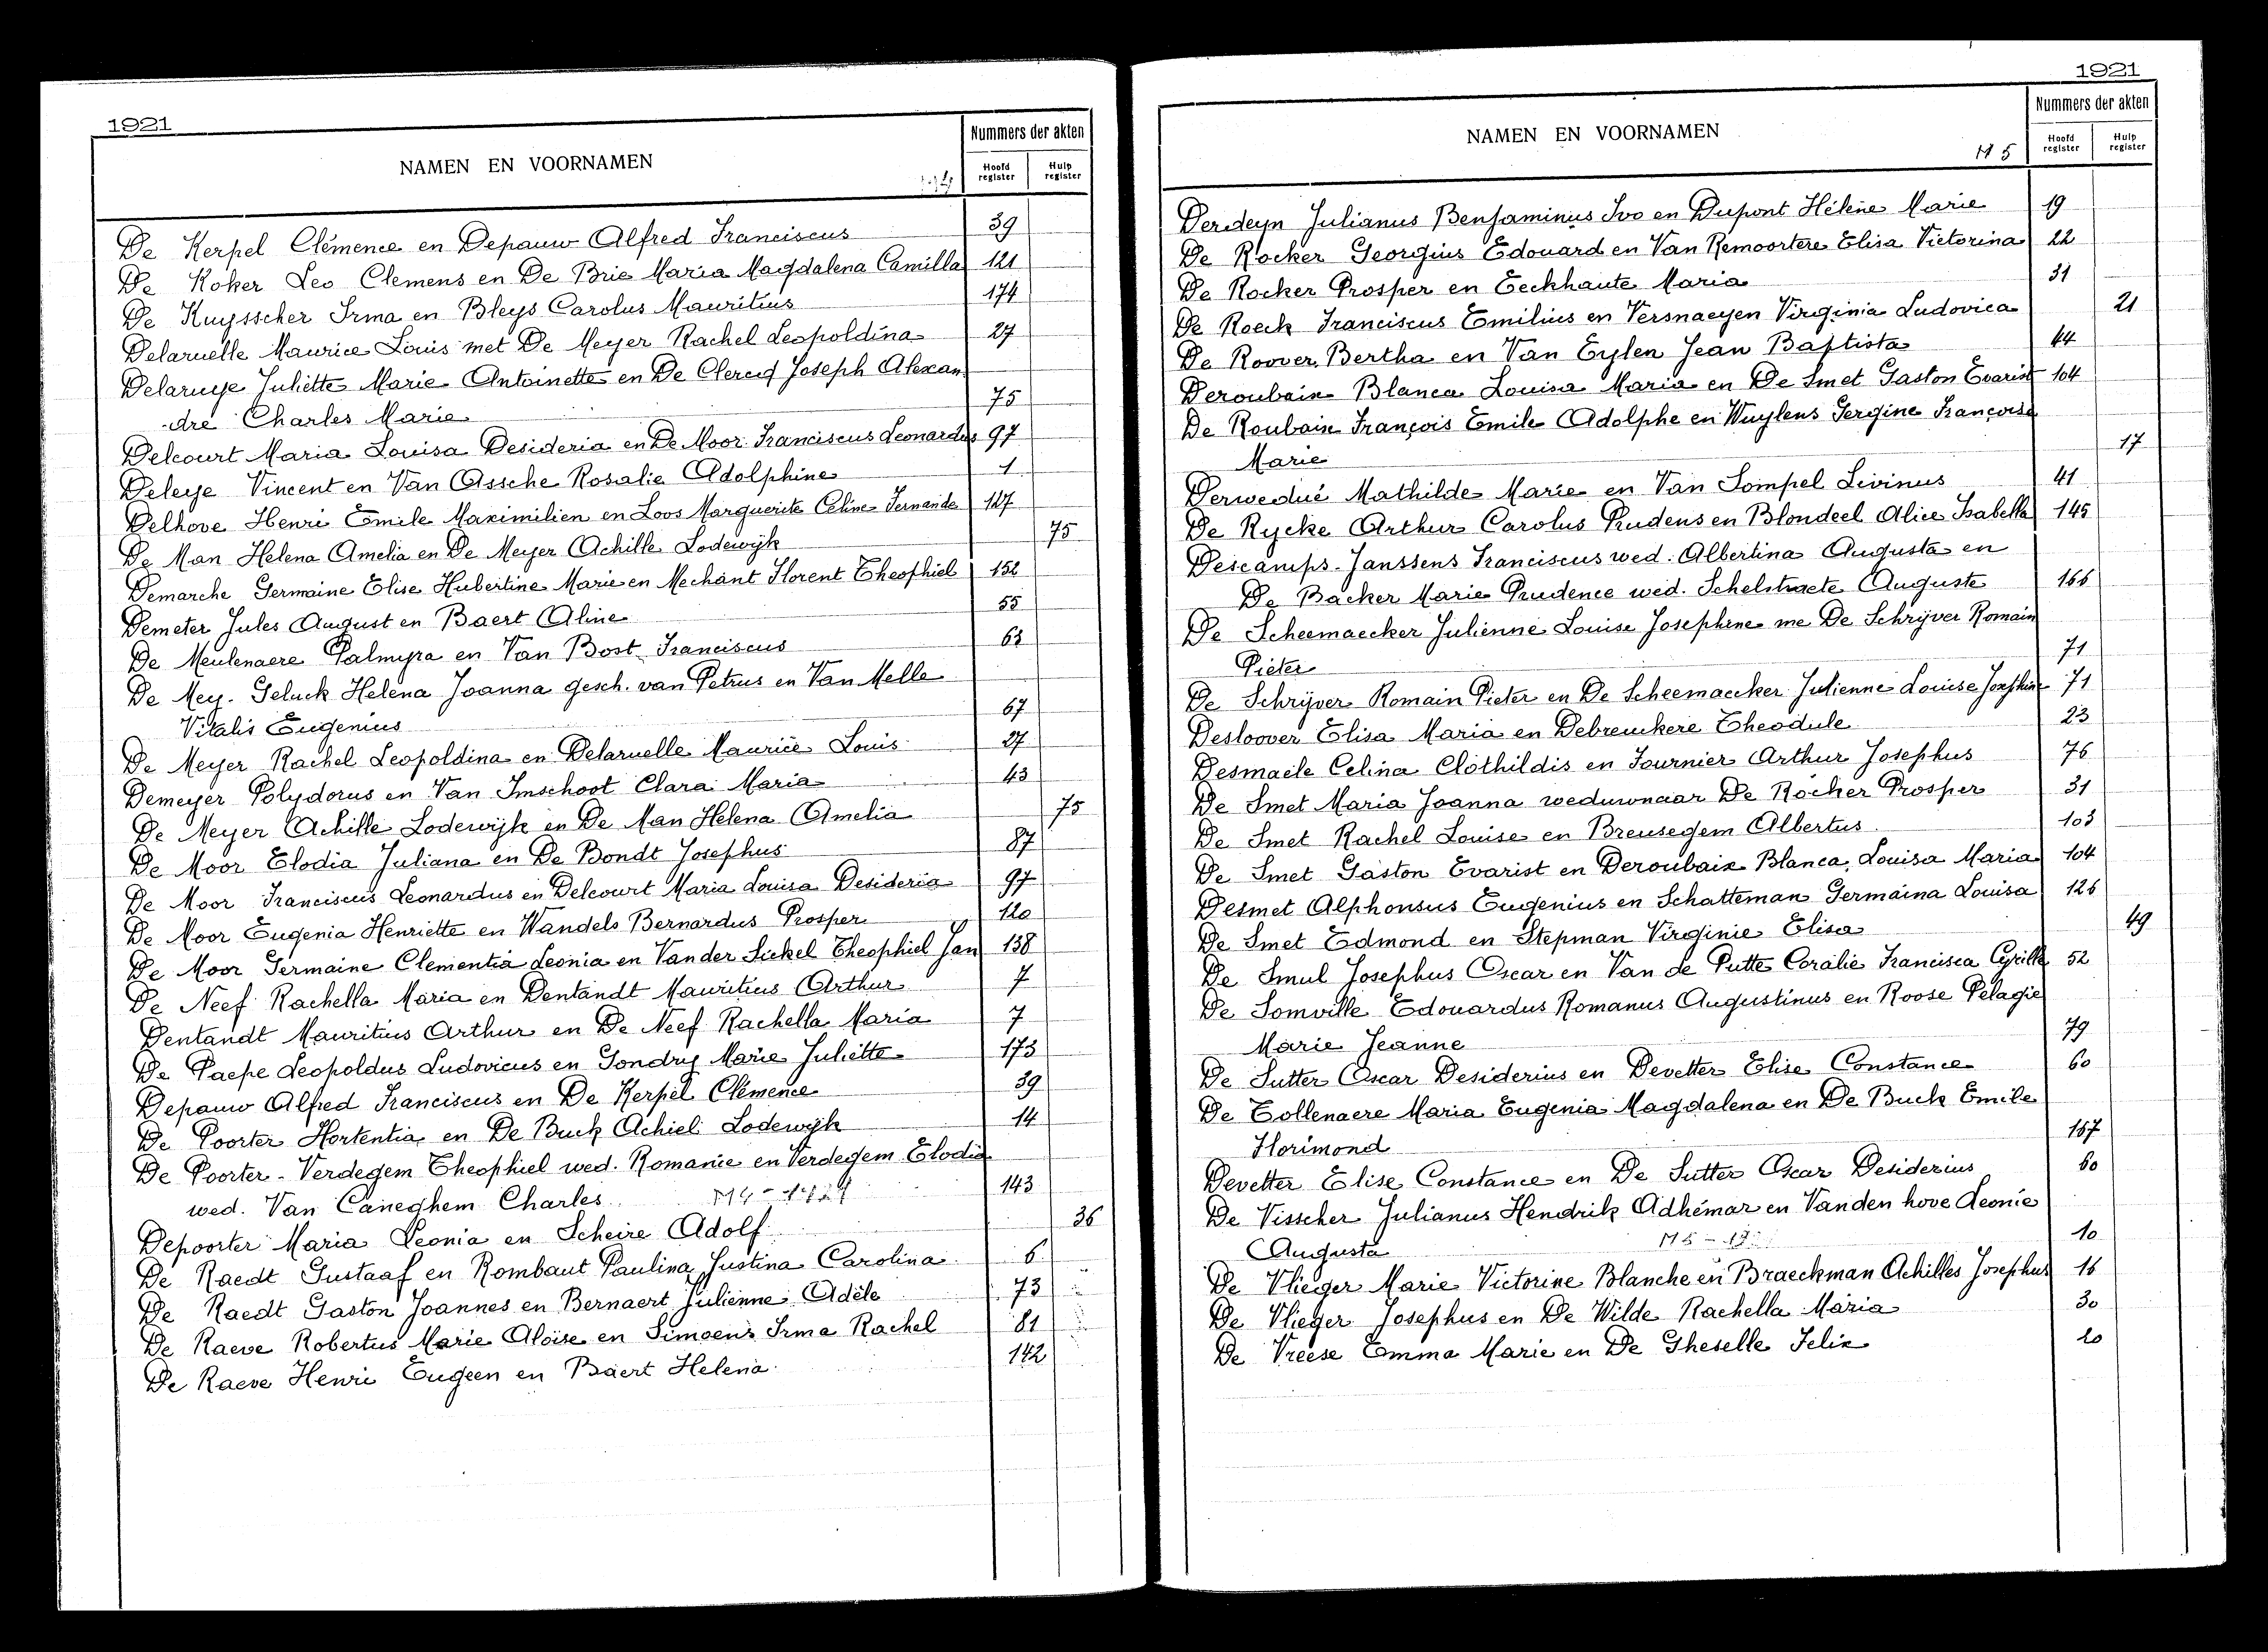 1921
NAMEN EN VOORNAMEN
Nummers der akten
Hoofd register
Hulp register
De Kerpel Clémence en Depauw Alfred Franciscus 39
De Koker Leo Clemens en De Brie Maria Magdalena Camilla 121
De Kuysscher Irma en Bleys Carolus Mauritius 174
Delaruelle Maurice Louis met De Meyer Rachel Leopoldina 27
Delaruye Juliette Marie Antoinette en De Clercq Joseph Alexan
-dre Charles Marie 75
Delcourt Maria Louisa Desideria en De Moor Franciscus Leonardus 97
Deleye Vincent en Van Assche Rosalie Adolphine 1
Delhove Henri Emile Maximilien en Loos Marguerite Celine Fernande 127
De Man Helena Amelia en De Meyer Achille Lodewijk 75
Demarche Germaine Elise Hubertine Marie en Mechant Florent Theophiel 152
Demeter Jules August en Baert Aline 55
De Meulenaere Palmyra en Van Bost Franciscus 63
De Mey - Geluck Helena Joanna gesch. van Petrus en Van Melle
Vitalis Eugenius 67
De Meyer Rachel Leopoldina en Delaruelle Maurice Louis 27
Demeyer Polydorus en Van Imschoot Clara Maria 43
De Meyer Achille Lodewijk en De Man Helena Amelia 75
De Moor Elodia Juliana en De Bondt Josephus 87
De Moor Franciscus Leonardus en Delcourt Maria Louisa Desideria 97
De Moor Eugenia Henriette en Wandels Bernardus Prosper 120
De Moor Germaine Clementia Leonia en Vander Sickel Theophiel Jan 138
De Neef Rachella Maria en Dentandt Mauritius Arthur 7
Dentandt Mauritius Arthur en De Neef Rachella Maria 7
De Paepe Leopoldus Ludovicus en Gondry Marie Juliette 173
Depauw Alfred Franciscus en De Kerpel Clémence 39
De Poorter Hortentia en De Buck Achiel Lodewijk 14
De Poorter - Verdegem Theophiel wed. Romanie en Verdegem Elodia
wed. Van Caneghem Charles 143
Depoorter Maria Leonia en Scheire Adolf 36
De Raedt Gustaaf en Rombaut Paulina Justina Carolina 6
De Raedt Gaston Joannes en Bernaert Julienne Adèle 73
De Raeve Robertus Marie Aloïse en Simoens Irma Rachel 81
De Raeve Henri Eugeen en Baert Helena 142
1921
NAMEN EN VOORNAMEN
M 5
Nummers der akten
Hoofd register
Hulp register
Derdeyn Julianus Benjaminus Ivo en Dupont Hélène Marie 19
De Rocker Georgius Edouard en Van Remoortere Elisa Victorina 22
De Rocker Prosper en Eeckhaute Maria 31
De Roeck Franciscus Emilius en Versnaeyen Virginia Ludovica 21
De Roover Bertha en Van Eylen Jean Baptista 44
Deroubaix Blanca Louisa Maria en De Smet Gaston Evarist 104
De Roubaix François Emile Adolphe en Wuylens Gergine Françoise
Marie 17
Derwedué Mathilde Marie en Van Sompel Livinus 41
De Rycke Arthur Carolus Prudens en Blondeel Alice Isabella 145
Descamps - Janssens Franciscus wed. Albertina Augusta en
De Backer Marie Prudence wed. Schelstraete Auguste 166
De Scheemaecker Julienne Louise Josephine me De Schrijver Romain
Pieter 71
De Schrijver Romain Pieter en De Scheemaecker Julienne Louise Josephine 71
Desloover Elisa Maria en Debreuckere Theodule 23
Desmaele Celina Clothildis en Fournier Arthur Josephus 76
De Smet Maria Joanna weduwnaar De Rocker Prosper 31
De Smet Rachel Louise en Breusegem Albertus 103
De Smet Gaston Evarist en Deroubaix Blanca Louisa Maria 104
Desmet Alphonsus Eugenius en Schatteman Germaina Louisa 126
De Smet Edmond en Stepman Virginie Elisa 49
De Smul Josephus Oscar en Van de Putte Coralie Francisca Cyrille 52
De Somville Edouardus Romanus Augustinus en Roose Pelagie
Marie Jeanne 79
De Sutter Oscar Desiderius en Devetter Elise Constance 60
De Tollenaere Maria Eugenia Magdalena en De Buck Emile
Florimond 167
Devetter Elise Constance en De Sutter Oscar Desiderius 60
De Visscher Julianus Hendrik Adhémar en Vanden hove Leonie
Augusta 10
De Vlieger Marie Victorine Blanche en Braeckman Achilles Josephus 16
De Vlieger Josephus en De Wilde Rachella Maria 30
De Vreese Emma Marie en De Gheselle Felix 20